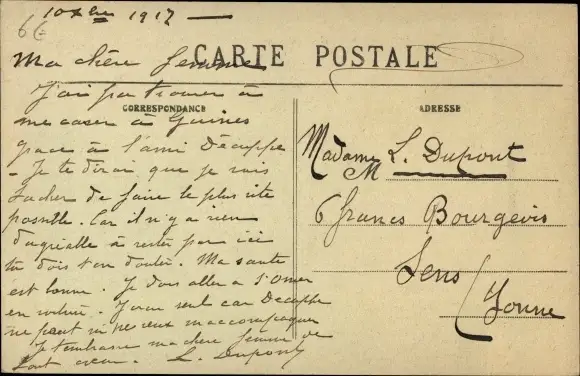 10 Xbre 1917
6E
Ma chère femme
CARTE POSTALE
CORRESPONDANCE
J'ai pu trouver à
me caser à Guines
grace à l'ami Décuppe
- Je te dirai que je vais
tacher de faire le plus vite
possible. Car il n'y a rien
d'agréable à rester par ici
tu dois t'en douter. Ma santé
est bonne. Je dois aller a St Omer
en voiture. J'irai seul car Décuppe
ne peut ni ne veux m'accompagner
Je t'embrasse ma chère femme de
tout coeur. L. Dupont
ADRESSE
Madame L. Dupont
M
6 francs Bourgeois
Sens
Yonne